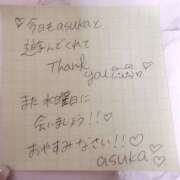 ♡今日もasukaと
遊んでくれて
Thank
you
♡
また水曜日に
会いましょう!!♡
おやすみなさい!!♡
asuka♡